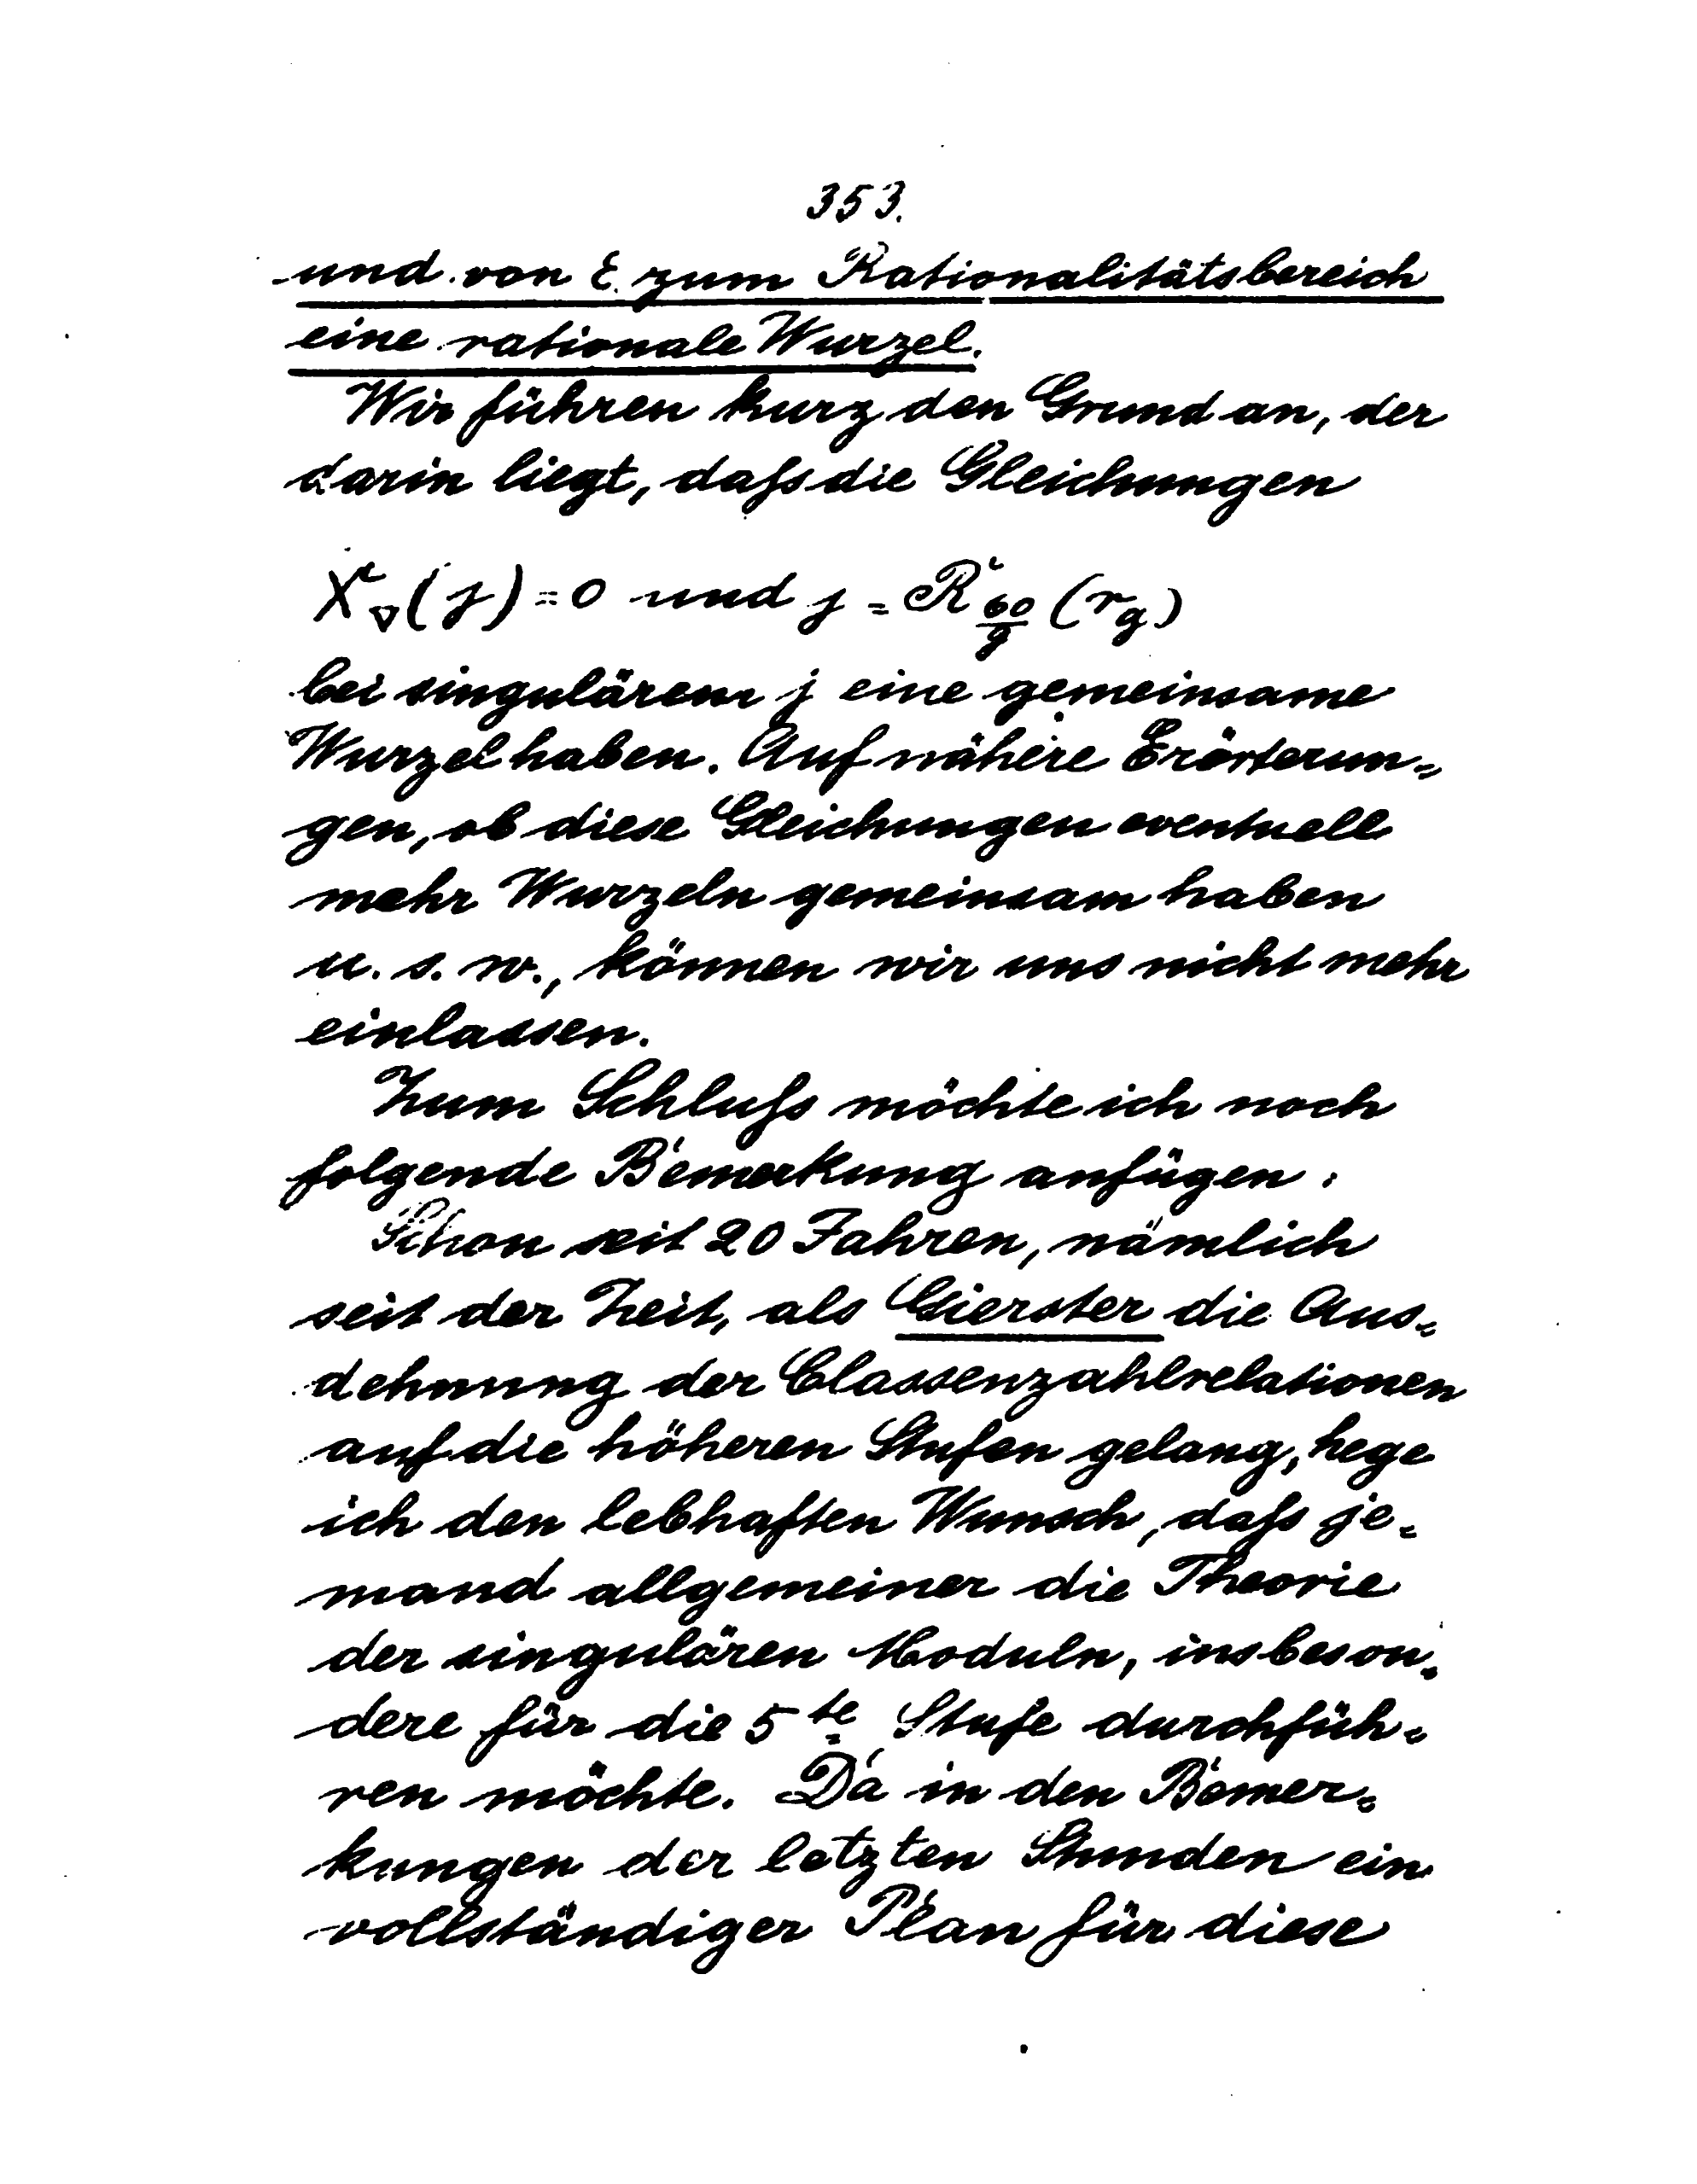 353.
und von ε zum Rationalitätsbereich
eine rationale Wurzel.
Wir führen kurz den Grund an, der
darin liegt, daſs die Gleichungen
X_∇(j) = 0 und j = R_{60/g}(r_g)
bei singulärem j eine gemeinsame
Wurzel haben. Auf nähere Erörterun=
gen, ob diese Gleichungen eventuell
mehr Wurzeln gemeinsam haben
u. s. w., können wir uns nicht mehr
einlassen.
Zum Schluſs möchte ich noch
folgende Bemerkung anfügen:
Schon seit 20 Jahren, nämlich
seit der Zeit, als Gierster die Aus=
dehnung der Classenzahlrelationen
auf die höheren Stufen gelang, hege
ich den lebhaften Wunsch, daſs je=
mand allgemeiner die Theorie
der singulären Moduln, insbeson=
dere für die 5te Stufe durchfüh=
ren möchte. Da in den Bemer=
kungen der letzten Stunden ein
vollständiger Plan für diese